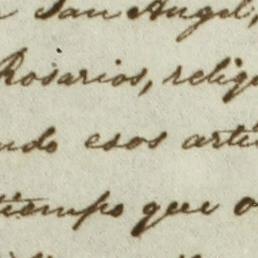 San Angel,
Rosarios, relig
ndo esos artí
tiempo que o